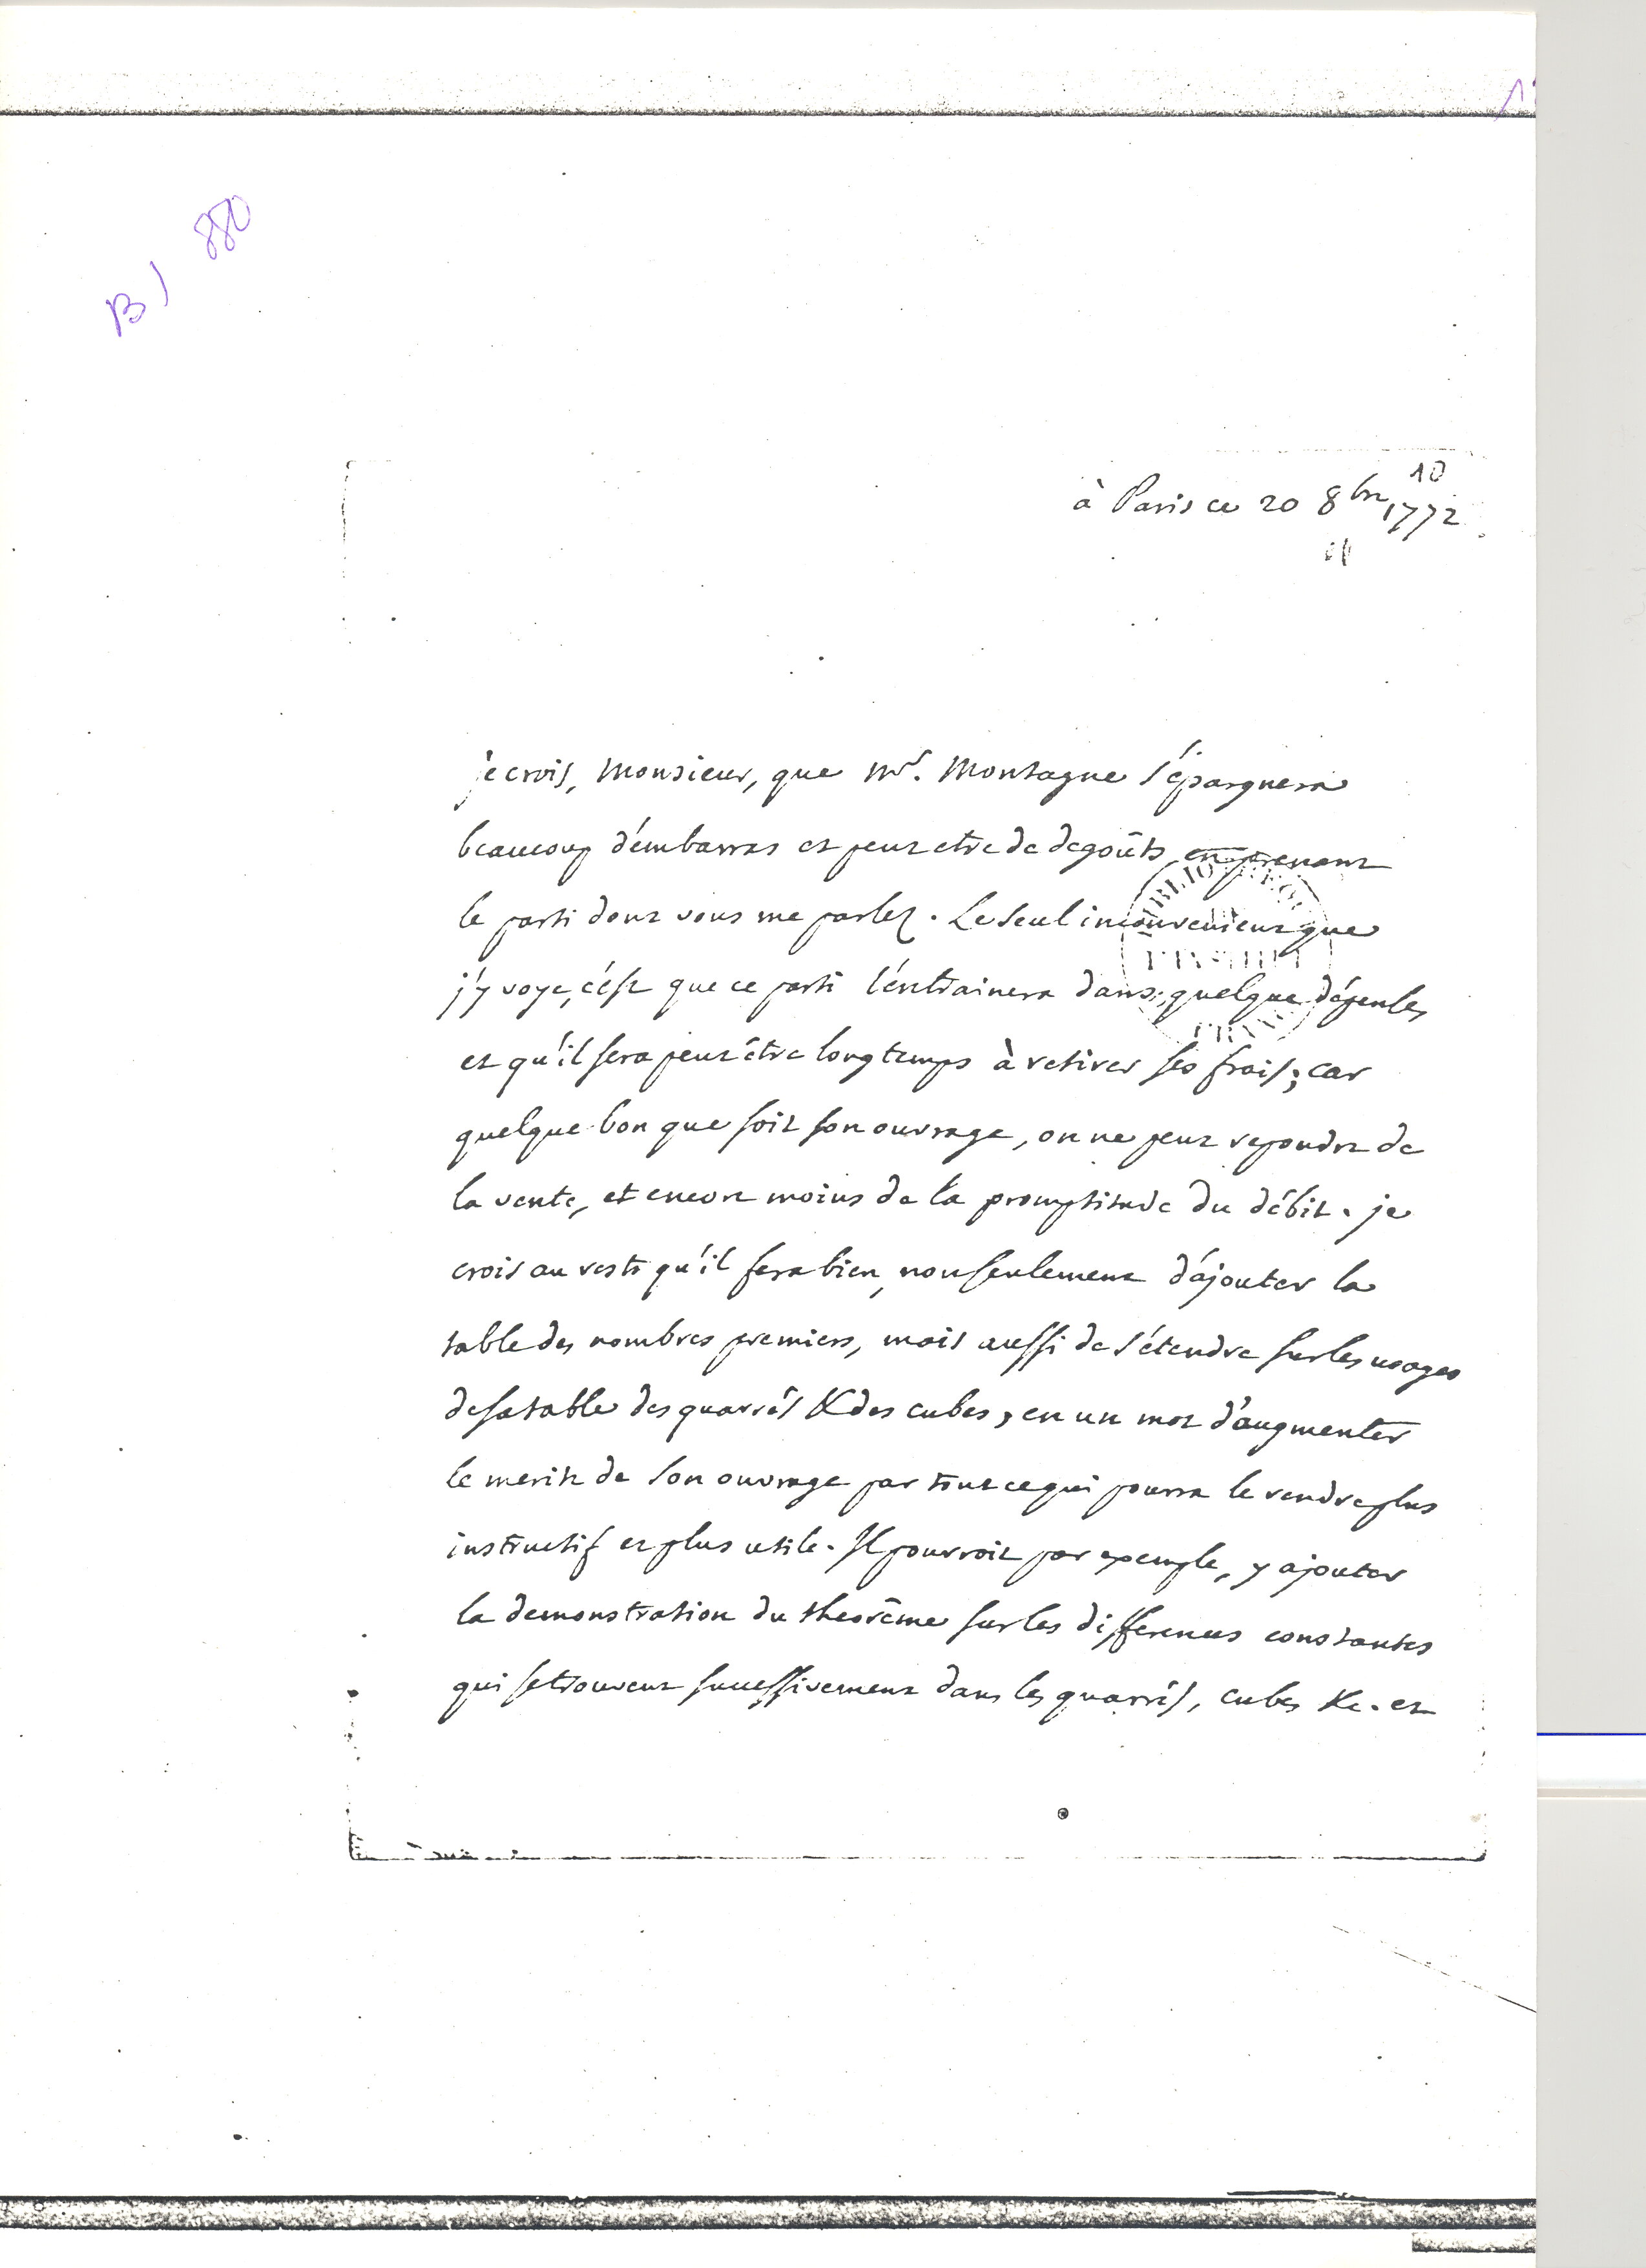 B) 880
10
à Paris ce 20 8bre 1772
je crois, Monsieur, que Mr. Montagne s'épargnera
beaucoup d'embarras et peut etre de degoûts, en prenant
le parti dont vous me parlez. Le seul inconvenient que
j'y voye, c'est que ce parti l'entrainera dans quelque dépense,
et qu'il sera peut être longtemps à retirer ses frais; car
quelque bon que soit son ouvrage, on ne peut repondre de
la vente, et encore moins de la promptitude du débit. je
crois au reste qu'il fera bien, non seulement d'ajouter la
table des nombres premiers, mais aussi de s'étendre sur les usages
de sa table des quarrés & des cubes, en un mot d'augmenter
le merite de son ouvrage par tout ce qui pourra le rendre plus
instructif et plus utile. Il pourroit par exemple, y ajouter
la demonstration du theorême sur les differences constantes
qui se trouvent successivement dans les quarrés, cubes &c. et